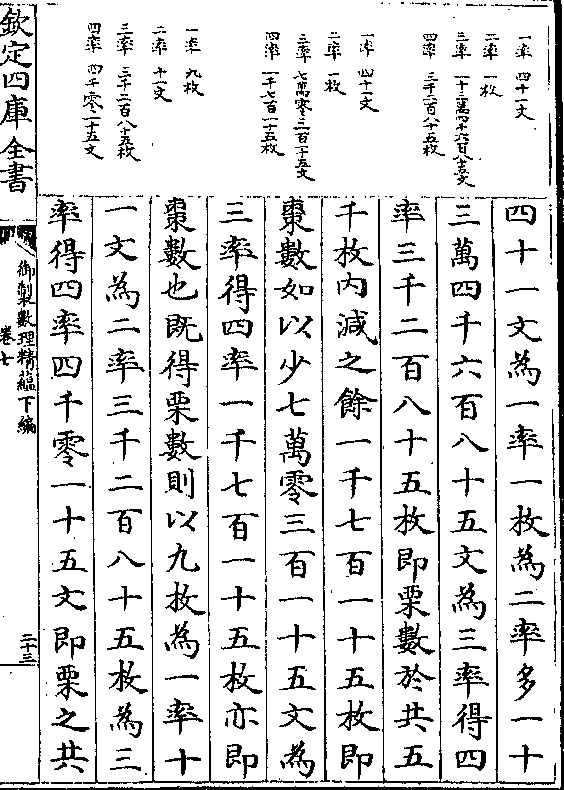 一率 四十一文
二率 一枚
三率 一十三萬四千六百八十五文
四率 三千二百八十五枚
一率 四十一文
二率 一枚
三率 七萬零三百一十五文
四率 一千七百一十五枚
一率 九枚
二率 十一文
三率 三千二百八十五枚
四率 四千零一十五文
四十一文為一率一枚為二率多一十
三萬四千六百八十五文為三率得四
率三千二百八十五枚即栗數於共五
千枚内減之餘一千七百一十五枚即
棗數如以少七萬零三百一十五文為
三率得四率一千七百一十五枚亦即
棗數也既得栗數則以九枚為一率十
一文為二率三千二百八十五枚為三
率得四率四千零一十五文即栗之共
欽定四庫全書
御製數理精蘊下編
卷七
二十三